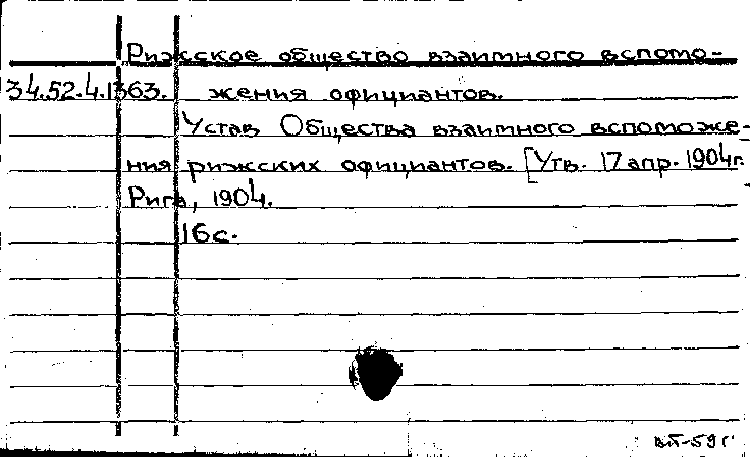 Рижское общество взаимного вспомо-
34.52.4.1363. жения официантов.
Устав Общества взаимного вспоможе-
ния рижских официантов. [Утв. 17 апр. 1904 г.
Рига, 1904.
16 с.